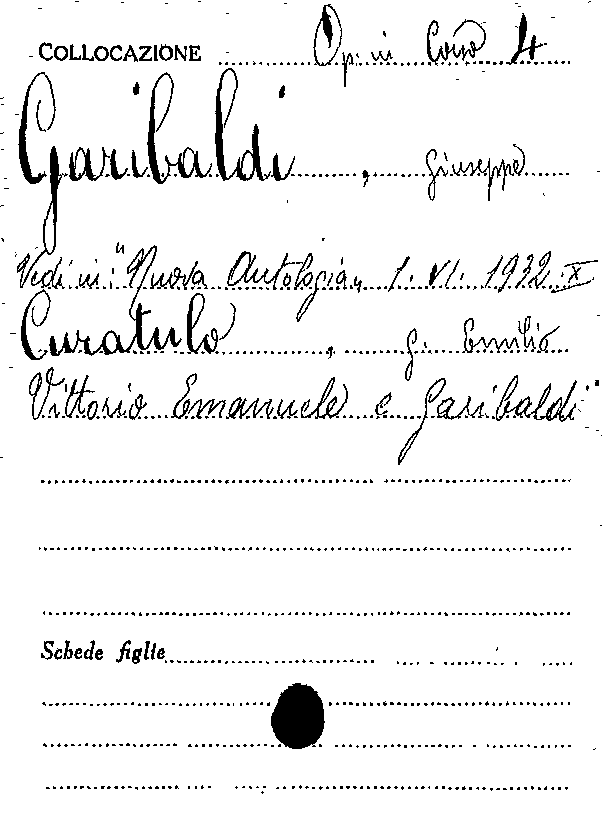 COLLOCAZIONE Op. in Corso 4
Garibaldi, Giuseppe
Vedi in: "Nuova Antologia„ 1. VI. 1932. X
Curatulo, G. Emilio
Vittorio Emanuele e Garibaldi"
Schede figlie